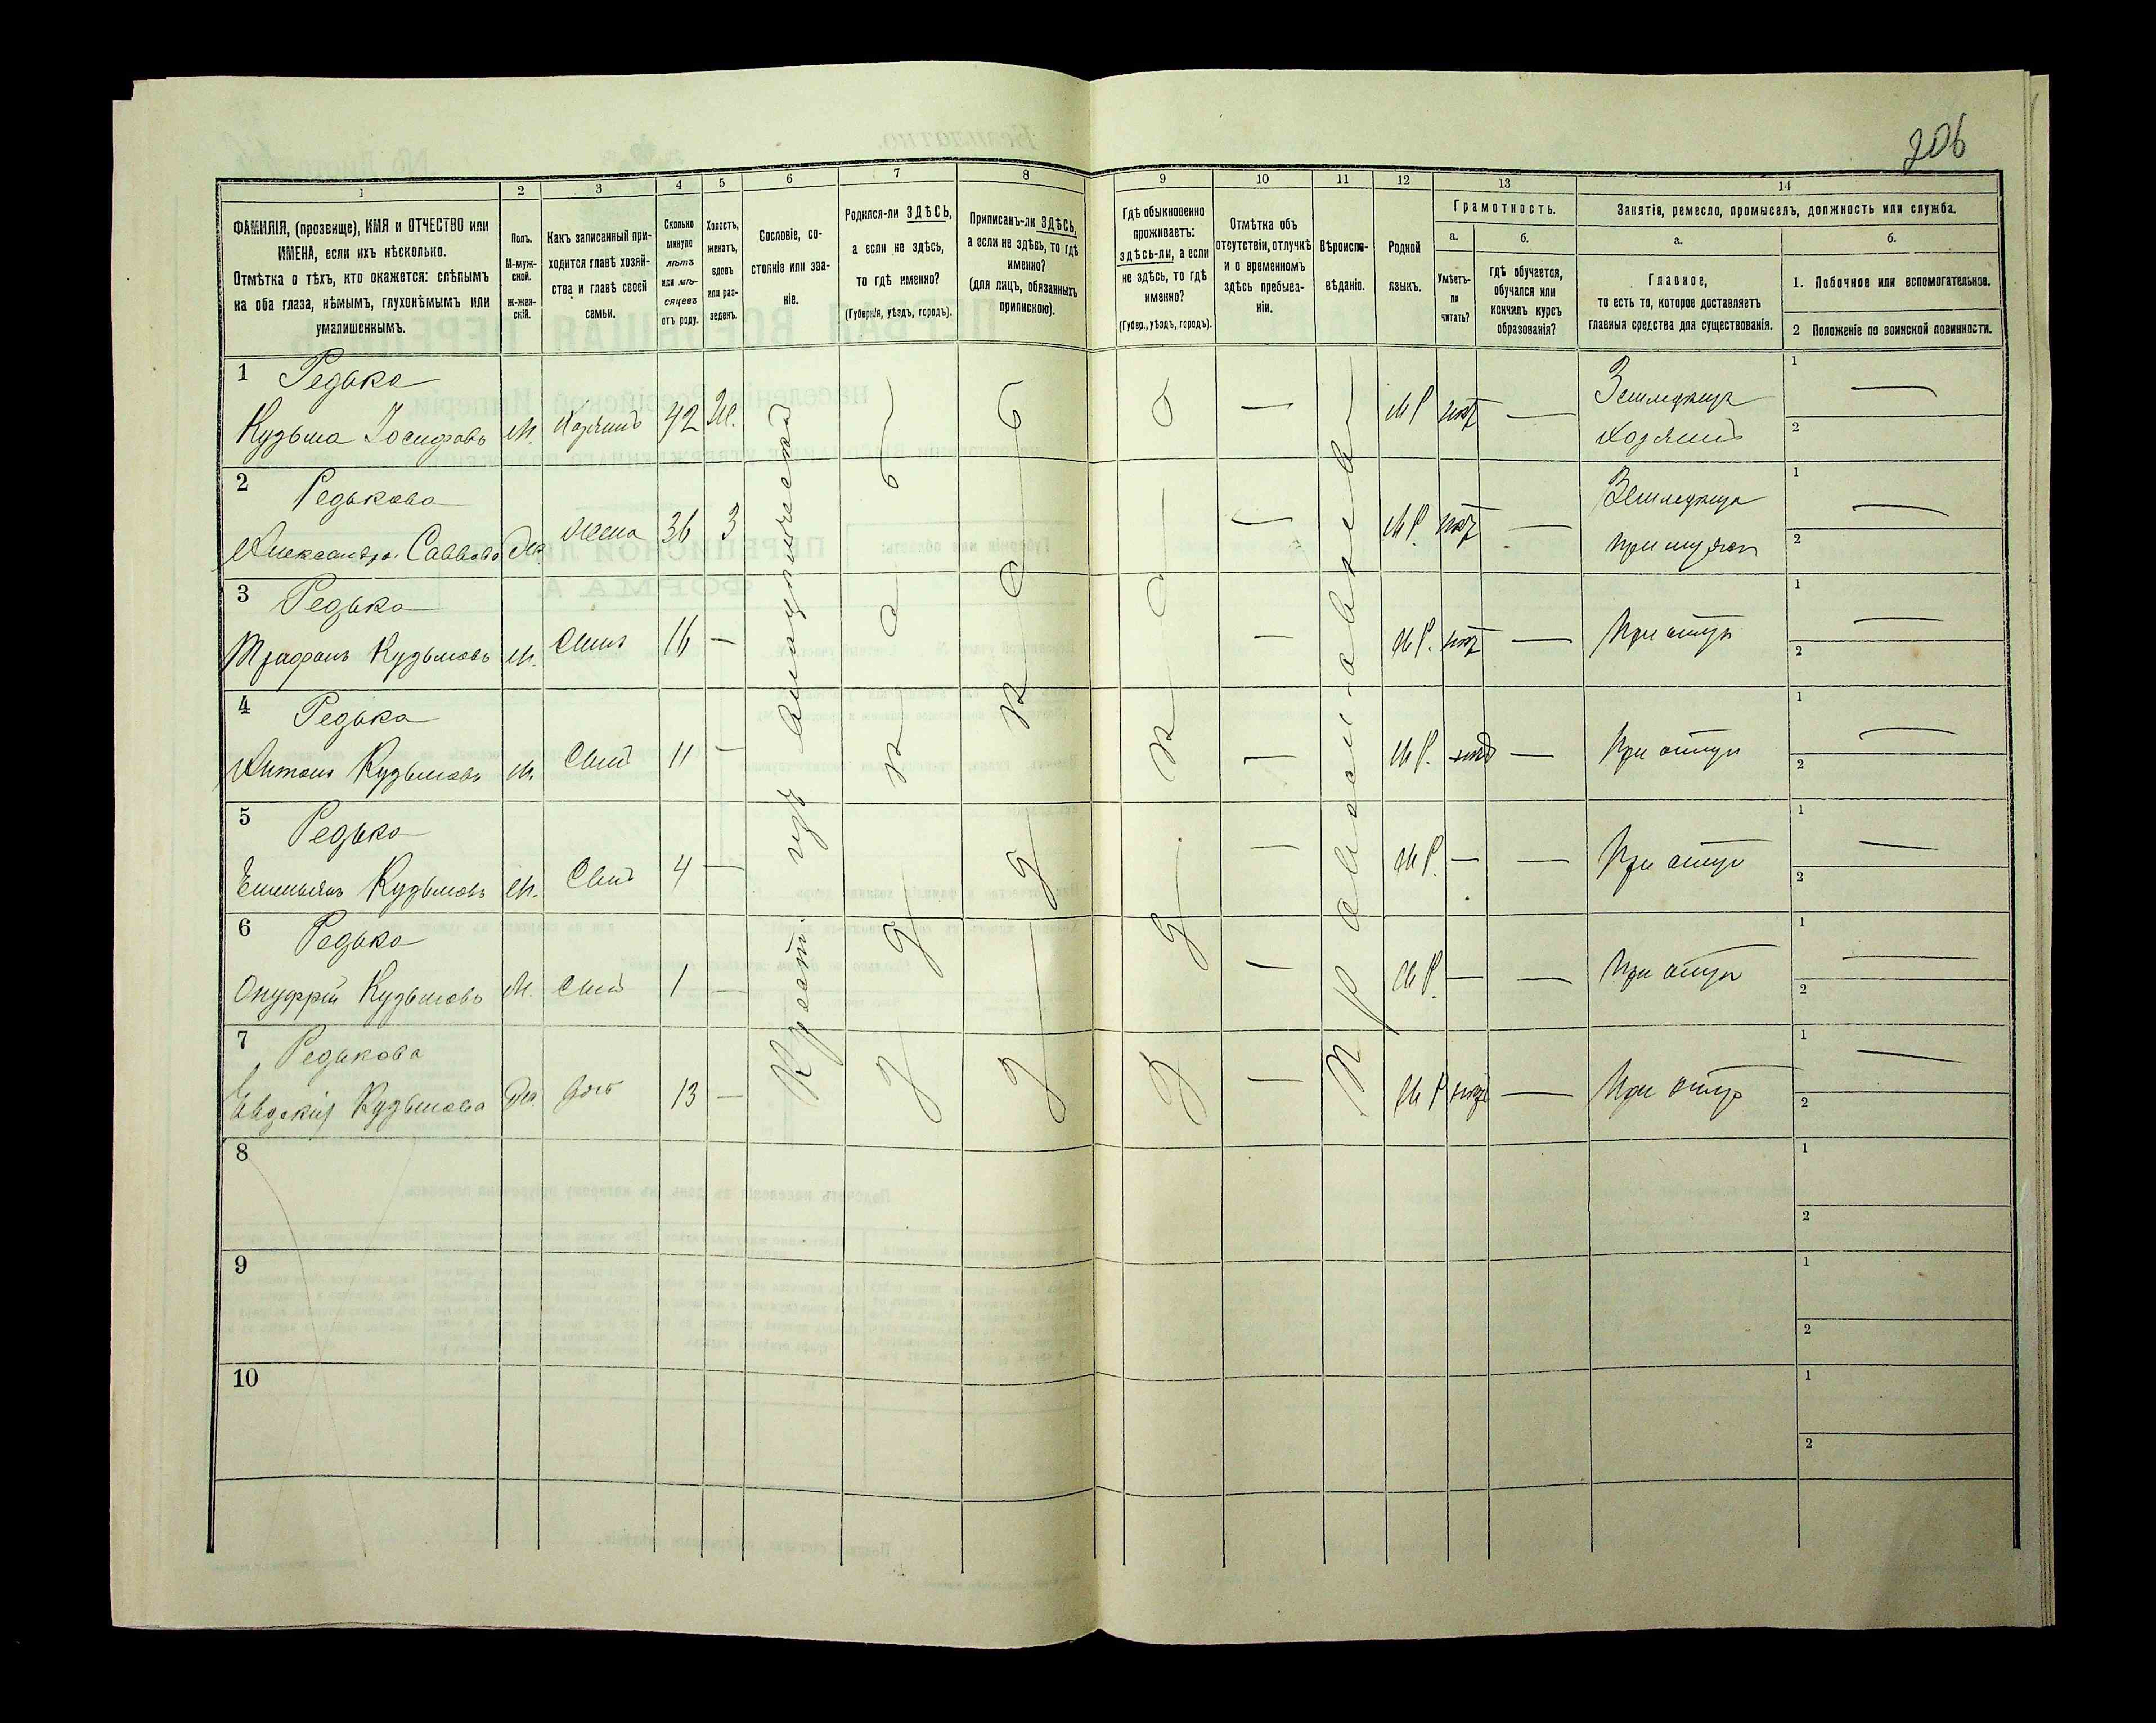 206
1
2
3
4
5
6
7
8
9
10
11
12
13
14
ФАМИЛІЯ, (прозвище), ИМЯ и ОТЧЕСТВО или
ИМЕНА, если ихъ нѣсколько.
Отмѣтка о тѣхъ, кто окажется: слѣпымъ
на оба глаза, нѣмымъ, глухонѣмымъ или
умалишеннымъ.
Полъ.
М-муж-
ской.
ж-жен-
скій.
Какъ записанный при-
ходится главѣ хозяй-
ства и главѣ своей
семьи.
Сколько
минуло
лѣтъ
или мѣ-
сяцевъ
отъ роду.
Холостъ,
женатъ,
вдовъ
или раз-
веденъ.
Сословіе, со-
стояніе или зва-
ніе.
Родился-ли ЗДѢСЬ,
а если не здѣсь,
то гдѣ именно?
(Губернія, уѣздъ, городъ).
Приписанъ-ли ЗДѢСЬ,
а если не здѣсь, то гдѣ
именно?
(для лицъ, обязанныхъ
припискою).
Гдѣ обыкновенно
проживаетъ:
здѣсь-ли, а если
не здѣсь, то гдѣ
именно?
(Губер., уѣздъ, городъ).
Отмѣтка объ
отсутствіи, отлучкѣ
и о временномъ
здѣсь пребыва-
ніи.
Вѣроиспо-
вѣданіе.
Родной
языкъ.
Грамотность.
а.
б.
Умѣетъ-
ли
читать?
гдѣ обучается,
обучался или
кончилъ курсъ
образованія?
Занятіе, ремесло, промыселъ, должность или служба.
а.
б.
Главное,
то есть то, которое доставляетъ
главныя средства для существованія.
1. Побочное или вспомогательное.
2 Положеніе по воинской повинности.
Крест. изъ
Православное
1 Редька
Кузьма Іосифовъ М. Хозяинъ 42 Ж. — М Р нѣт — Земледѣлец 1 —
хозяинъ 2
2 Редькова
Александра Саввова Ж. жена 36 З — М Р. нѣт — Земледѣлец 1 —
при мужѣ 2
3 Редька
Трифонъ Кузьмовъ М. Сынъ 16 — — М Р. нѣт — При отцѣ 1 —
2
4 Редька
Антонъ Кузьмовъ М. Сынъ 11 — — М Р. нѣт — При отцѣ 1 —
2
5 Редька
Емельянъ Кузьмовъ М. Сынъ 4 — — М Р. — — При отцѣ 1 —
2
6 Редька
Онуфрій Кузьмовъ М. Сынъ 1 — — М Р. — — При отцѣ 1 —
2
7 Редькова
Евдокія Кузьмова Ж. дочь 13 — — М Р нѣт — При отцѣ 1 —
2
8
1
2
9
1
2
10
1
2